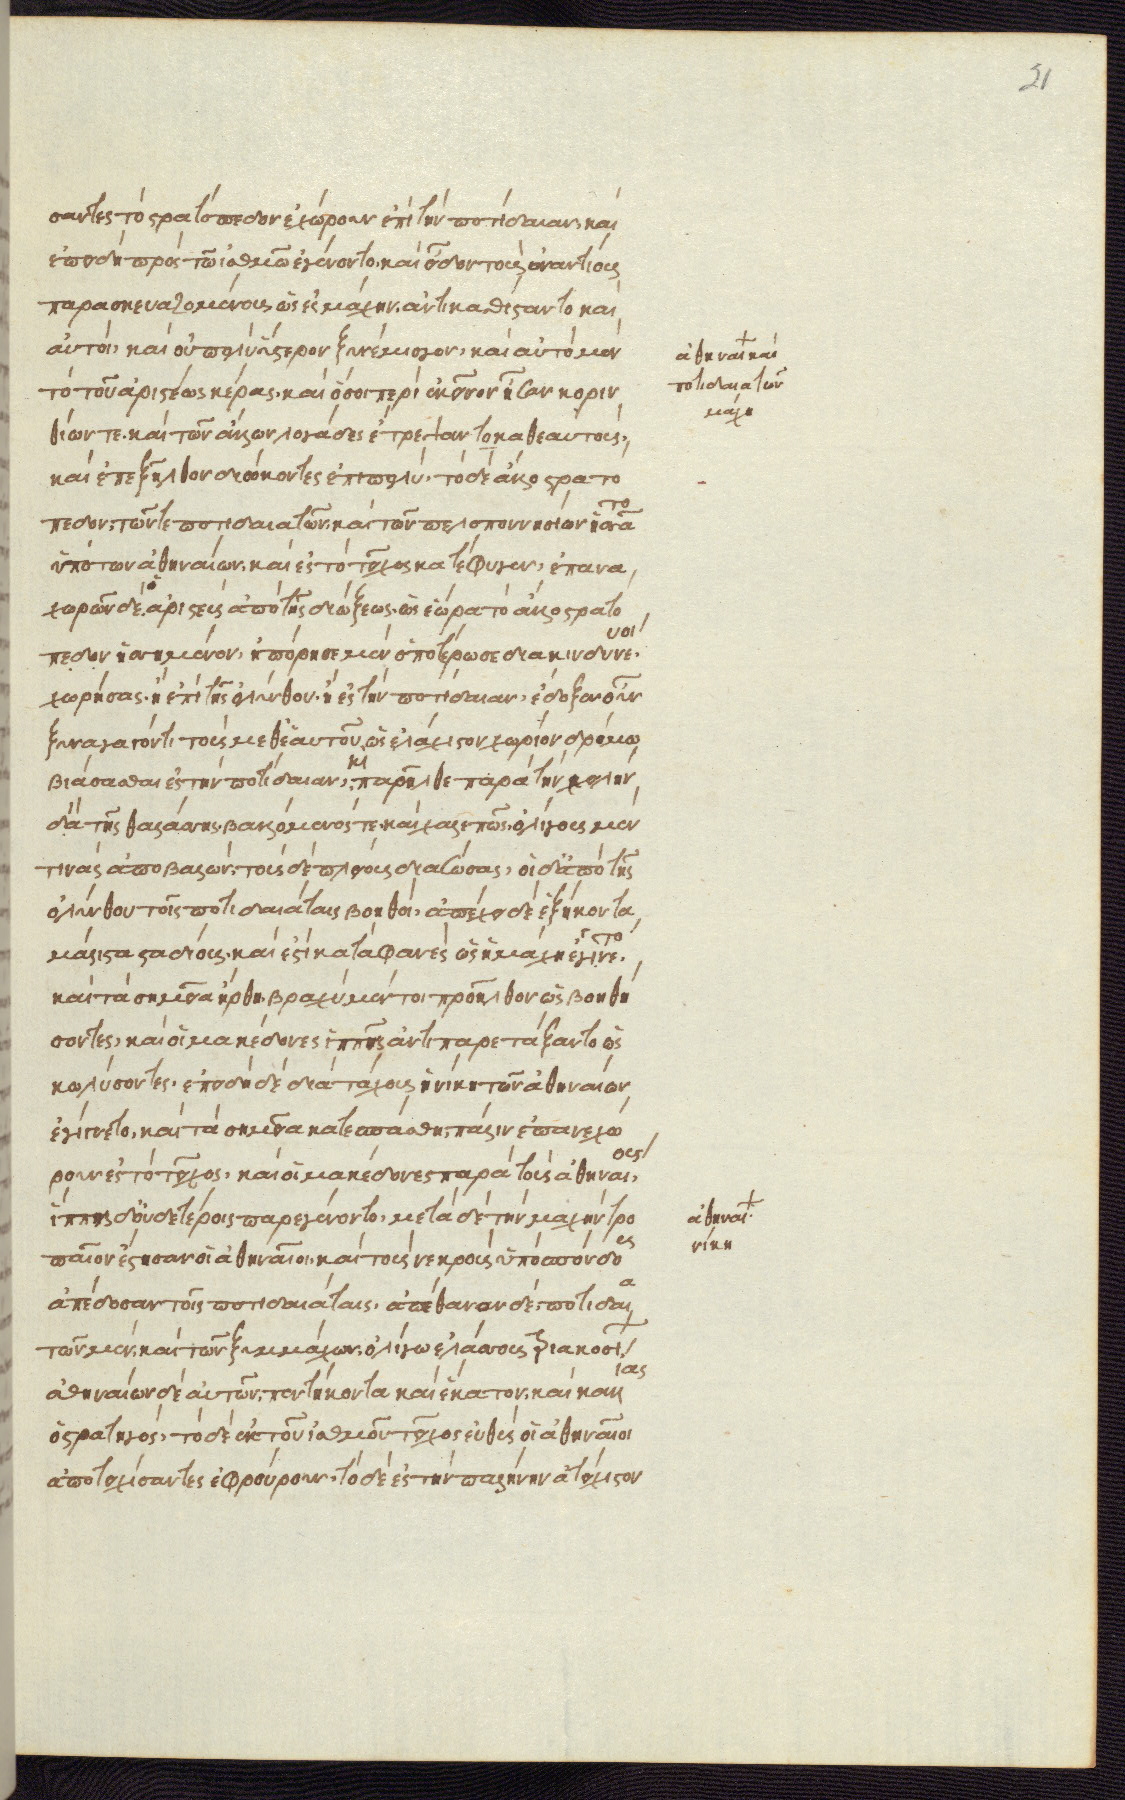 51
σαντες τὸ στρατόπεδον ἐχώρουν ἐπὶ τὴν ποτίδαιαν, καὶ
ἐπειδὴ πρὸς τῶ ἰσθμῶ ἐγένοντο, καὶ εἶδον τοὺς ἐναντίους
παρασκευαζομένους ὡς ἐς μάχην, ἀντικαθίσταντο καὶ
αὐτοὶ, καὶ οὐ πολὺ ὕστερον ξυνέμισγον, καὶ αὐτὸ μὲν
τὸ τοῦ ἀριστέως κέρας, καὶ ὅσοι περὶ ἐκεῖνον ἦσαν κοριν
θίων τε, καὶ τῶν ἄλλων λογάδες ἔτρεψαν τὸ καθεαυτοὺς,
καὶ ἐπεξῆλθον διώκοντες ἐπιπολύ, τὸ δὲ ἄλλο στρατό
πεδον, τῶν τε ποτιδαιατῶν, καὶ τῶν πελοποννησίων ἡσσᾶτο
ὑπὸ των ἀθηναίων, καὶ ἐς τὸ τεῖχος κατέφυγεν, ἐπανα
χωρῶν δὲ ὁ ἀριστεὺς ἀπὸ τῆς διώξεως, ὡς ἑώρα τὸ ἄλλο στρατό
πεδον ἡσσημένον, ἠπόρησε μὲν ὁποτέρωσε διακινδυνεύσει
χωρήσας, ἢ ἐπὶ τῆς ὀλύνθου, ἢ ἐς τὴν ποτίδαιαν, ἔδοξεν οὖν
ξυναγαγόντι τοὺς μεθ' ἑαυτοῦ ὡς ἐλάχιστον χωρίον δρόμω
βιάσασθαι ἐς τὴν ποτίδαιαν, καὶ παρῆλθε παρὰ τὴν χηλὴν
διὰ τῆς θαλάσσης, βαλλόμενός τε, καὶ χαλεπῶς, ὀλίγους μέν
τινας ἀποβαλών, τοὺς δὲ πλείους διασώσας, οἱ δ' ἀπὸ τῆς
ὀλύνθου τοῖς ποτιδαιάταις βοηθοὶ, ἀπέχει δὲ ἑξήκοντα
μάλιστα σταδίους, καὶ ἔστι καταφανὲς ὡς ἡ μάχη ἐγίνετο
καὶ τὰ σημεῖα ἤρθη, βραχὺ μέν τι προῆλθον ὡς βοηθή
σοντες, καὶ οἱ μακεδόνες ἱππῆς ἀντιπαρετάξαντο ὡς
κωλύσοντες, ἐπειδὴ δὲ διὰ τάχους ἡ νίκη τῶν ἀθηναίων
ἐγίγνετο, καὶ τὰ σημεῖα κατεσπάσθη, πάλιν ἐπανεχώ
ρουν ἐς τὸ τεῖχος, καὶ οἱ μακεδόνες παρὰ τοὺς ἀθηναίους
ἱππῆς δ' οὐδετέροις παρεγένοντο, μετὰ δὲ τὴν μάχην τρο
παῖον ἔστησαν οἱ ἀθηναῖοι, καὶ τοὺς νεκροὺς ὑποσπόνδους
ἀπέδοσαν τοῖς ποτιδαιάταις, ἀπέθανον δὲ, ποτιδαια
τῶν μὲν, καὶ τῶν ξυμμάχων, ὀλίγω ἐλάσσους τριακοσίων
ἀθηναίων δὲ αὐτῶν, πεντήκοντα καὶ ἑκατον, καὶ καλλίας
ὁ στρατηγός, τὸ δὲ ἐκ τοῦ ἰσθμοῦ τεῖχος εὐθὺς οἱ ἀθηναῖοι
ἀποτειχίσαντες ἐφρούρουν, τὸ δὲ ἐς τὴν παλλήνην ἀτείχιστον
ἀθηναίων καὶ
ποτιδαιατῶν
μάχη
ἀθηναίων
νίκη